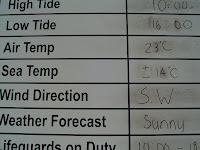 High Tide 10:00
Low Tide 16:00
Air Temp 23°C
Sea Temp ± 14°C
Wind Direction S.W
Weather Forecast Sunny
Lifeguards on Duty 10.00 - 18